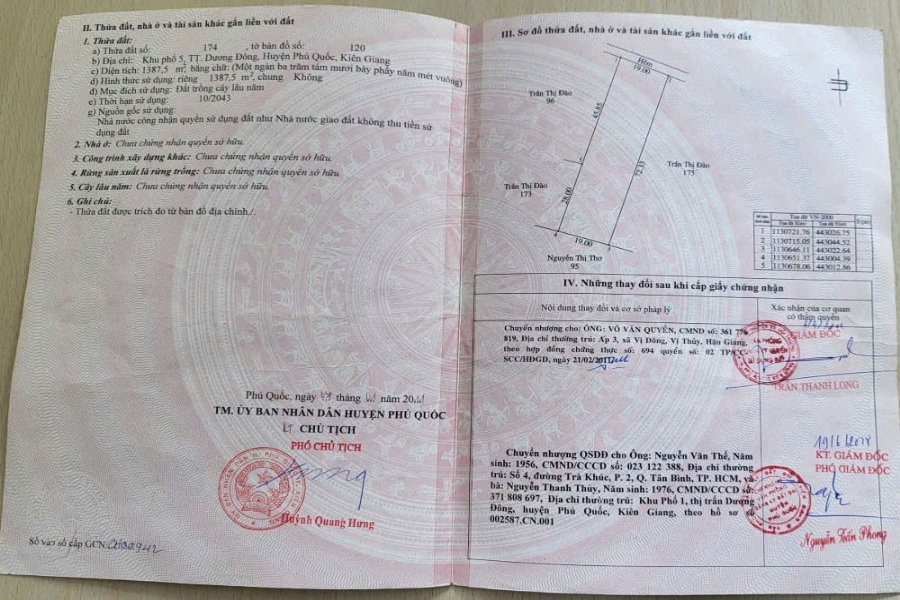 II. Thửa đất, nhà ở và tài sản khác gắn liền với đất
1. Thửa đất:
a) Thửa đất số: 174 , tờ bản đồ số: 120
b) Địa chỉ: Khu phố 5, TT. Dương Đông, Huyện Phú Quốc, Kiên Giang
c) Diện tích: 1387,5 m², bằng chữ: (Một ngàn ba trăm tám mươi bảy phẩy năm mét vuông)
d) Hình thức sử dụng: riêng 1387,5 m², chung Không
đ) Mục đích sử dụng: Đất trồng cây lâu năm
e) Thời hạn sử dụng: 10/2043
g) Nguồn gốc sử dụng:
Nhà nước công nhận quyền sử dụng đất như Nhà nước giao đất không thu tiền sử
dụng đất
2. Nhà ở: Chưa chứng nhận quyền sở hữu.
3. Công trình xây dựng khác: Chưa chứng nhận quyền sở hữu.
4. Rừng sản xuất là rừng trồng: Chưa chứng nhận quyền sở hữu.
5. Cây lâu năm: Chưa chứng nhận quyền sở hữu.
6. Ghi chú:
- Thửa đất được trích đo từ bản đồ địa chính./.
Phú Quốc, ngày tháng năm 20
TM. ỦY BAN NHÂN DÂN HUYỆN PHÚ QUỐC
KT CHỦ TỊCH
PHÓ CHỦ TỊCH
Huỳnh Quang Hưng
Số vào sổ cấp GCN:
III. Sơ đồ thửa đất, nhà ở và tài sản khác gắn liền với đất
Hẻm
19.00
Trần Thị Đào
96
45.85
72.33
Trần Thị Đào
175
Trần Thị Đào
173
28.00
19.00
Nguyễn Thị Thơ
95
Tọa độ VN-2000
1 1130721.76 443026.75
2 1130715.05 443044.52
3 1130646.11 443022.64
4 1130651.37 443004.39
5 1130678.06 443012.86
IV. Những thay đổi sau khi cấp giấy chứng nhận
Nội dung thay đổi và cơ sở pháp lý
Xác nhận của cơ quan
có thẩm quyền
Chuyển nhượng cho: ÔNG: VÕ VĂN QUYỀN, CMND số: 361 776
819, Địa chỉ thường trú: Ấp 3, xã Vị Đông, Vị Thủy, Hậu Giang,
theo hợp đồng chứng thực số: 694 quyển số: 02 TP/CC-
SCC/HĐGD, ngày 21/02/2011
GIÁM ĐỐC
TRẦN THANH LONG
Chuyển nhượng QSDĐ cho Ông: Nguyễn Văn Thể, Năm
sinh: 1956, CMND/CCCD số: 023 122 388, Địa chỉ thường
trú: Số 4, đường Trà Khúc, P. 2, Q. Tân Bình, TP. HCM, và
bà: Nguyễn Thanh Thủy, Năm sinh: 1976, CMND/CCCD số:
371 808 697, Địa chỉ thường trú: Khu Phố 1, thị trấn Dương
Đông, huyện Phú Quốc, Kiên Giang, theo hồ sơ số
002587.CN.001
19/6/2018
KT. GIÁM ĐỐC
PHÓ GIÁM ĐỐC
Nguyễn Tấn Phong